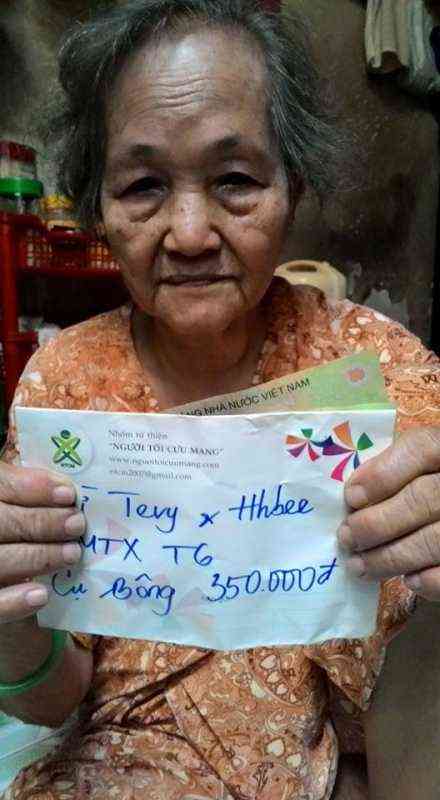 NG NHÀ NƯỚC VIỆT NAM
Nhóm từ thiện
"NGƯỜI TÔI CƯU MANG"
www.nguoitoicuumang.com
ntcm2007@gmail.com
NTCM
Tevy x Hhbee
MTX T6
Cụ Bông 350.000đ